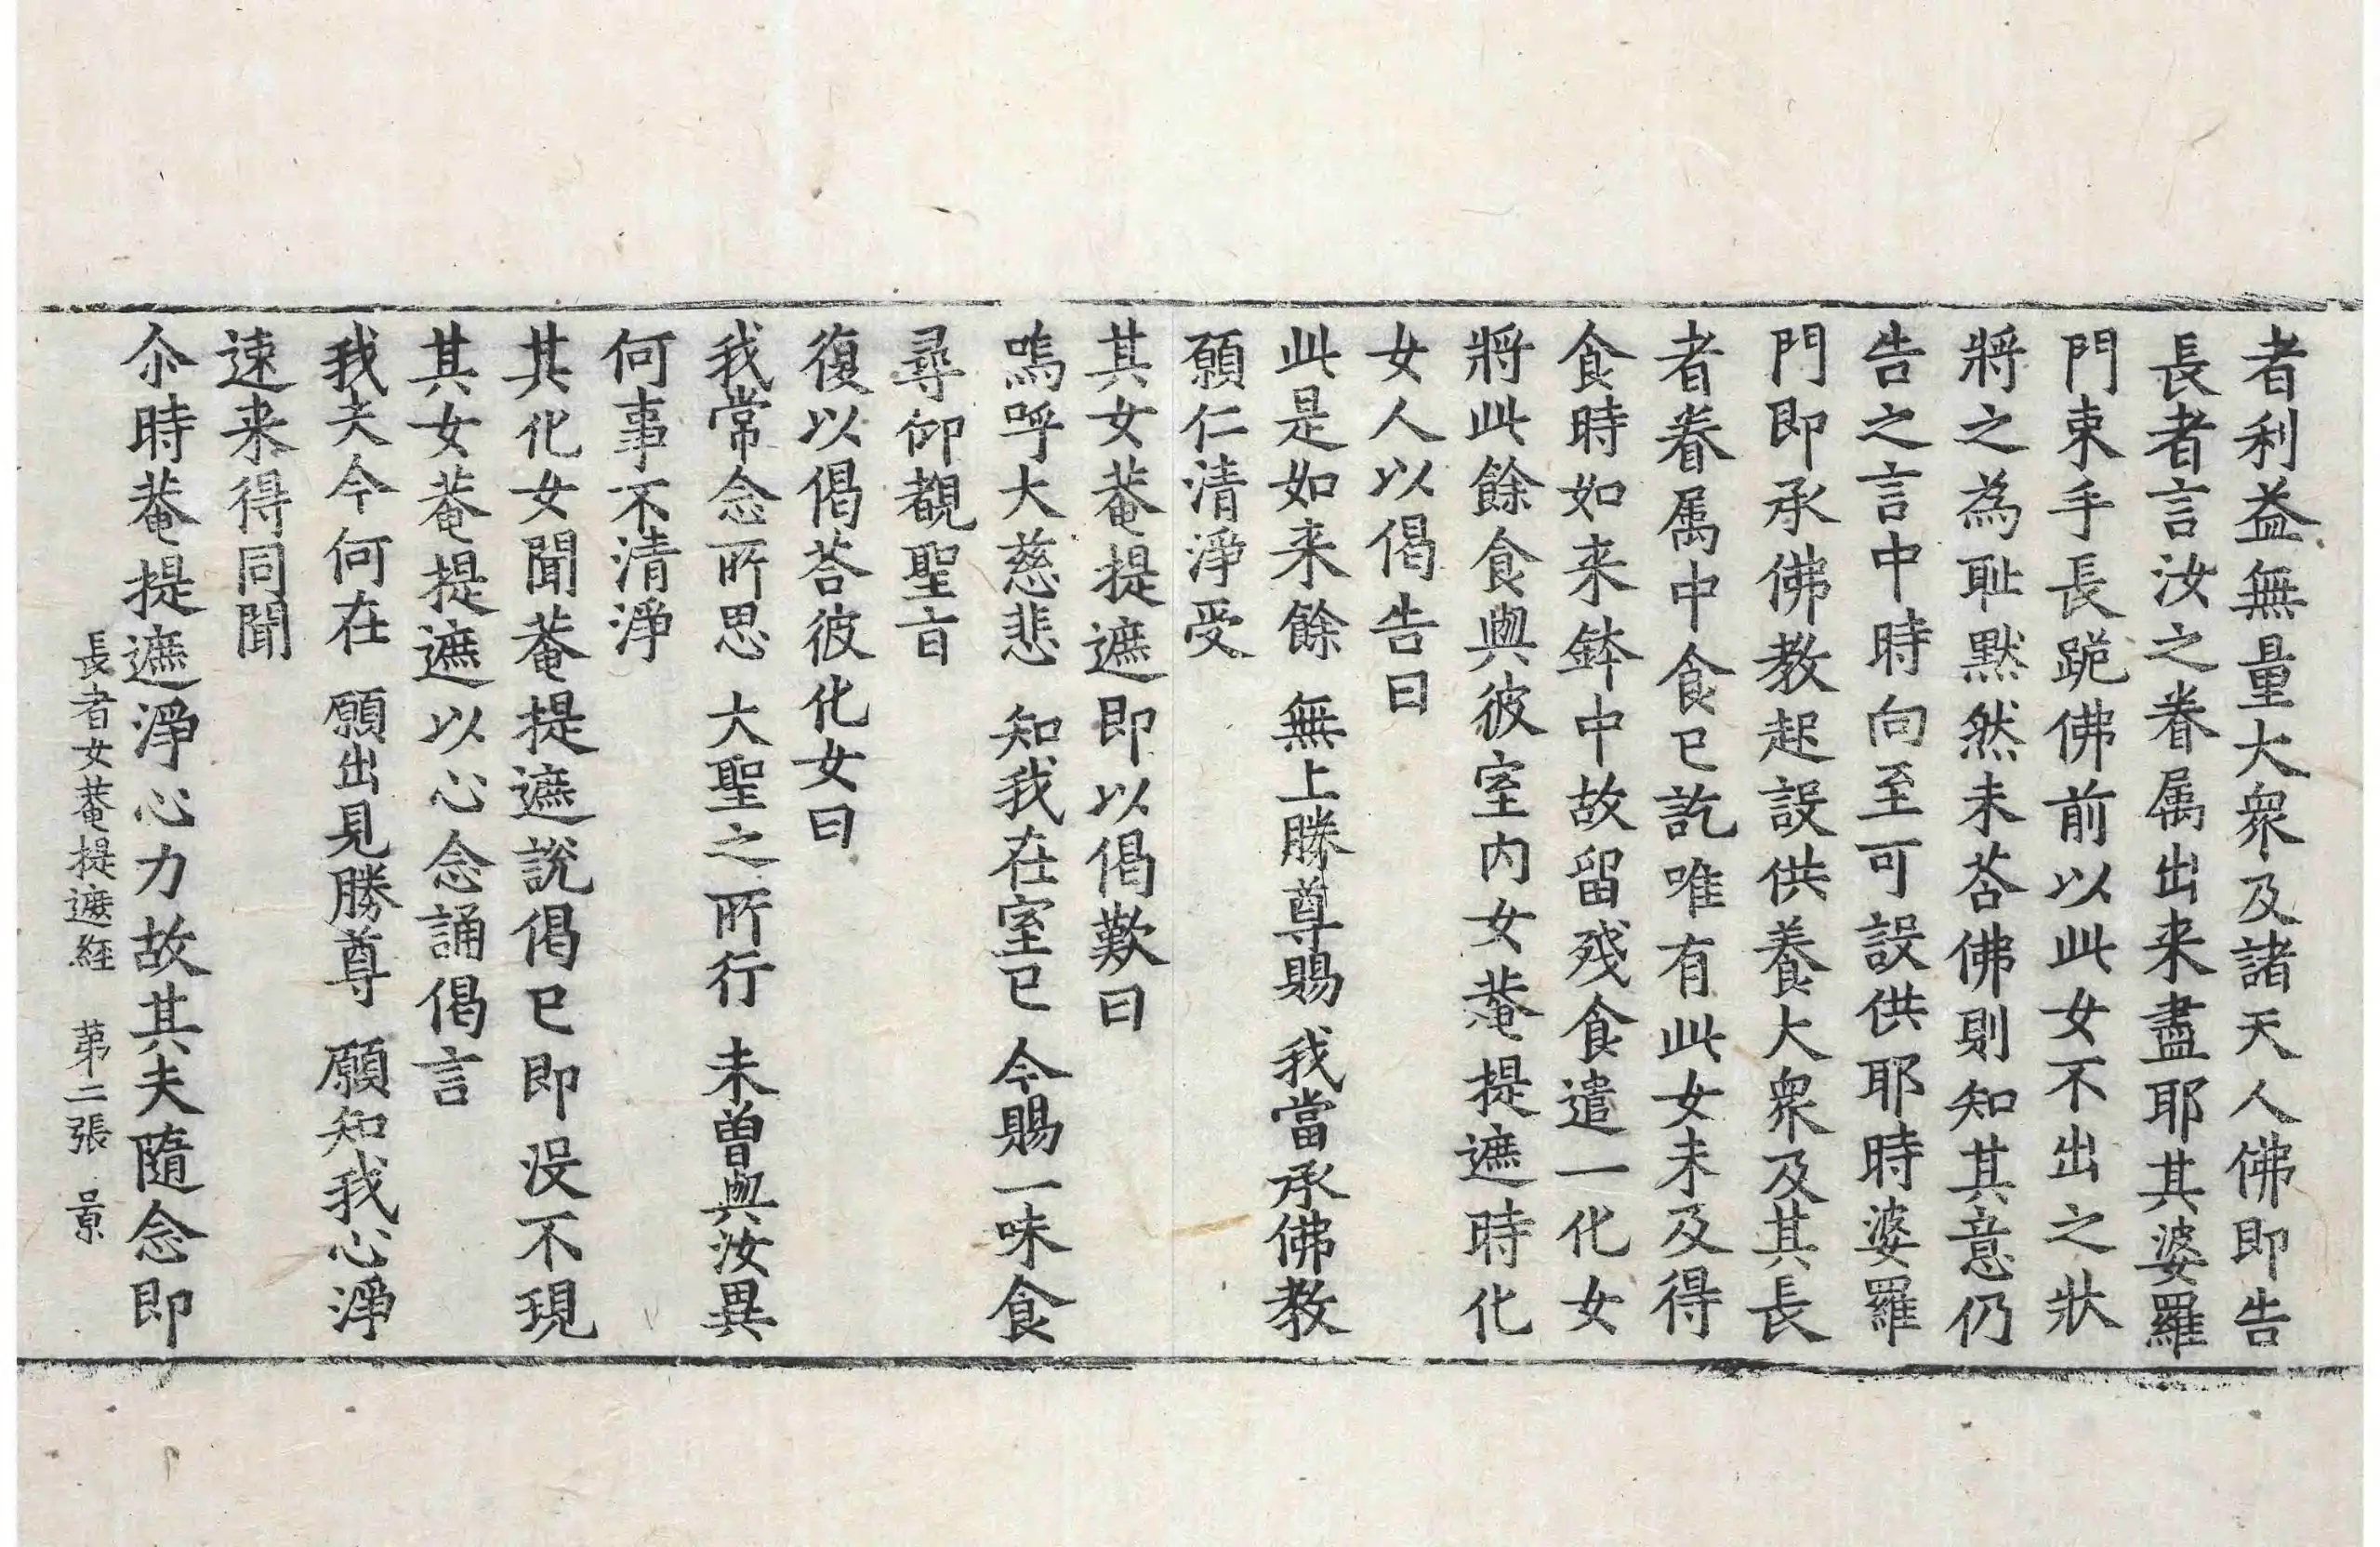 者利益無量大衆及諸天人佛即告
長者言汝之眷属出来盡耶其婆羅
門束手長跪佛前以此女不出之狀
將之為恥默然未荅佛則知其意仍
告之言中時向至可設供耶時婆羅
門即承佛教起設供養大衆及其長
者眷属中食已訖唯有此女未及得
食時如来鉢中故留殘食遣一化女
將此餘食與彼室内女菴提遮時化
女人以偈告曰
此是如来餘　無上勝尊賜　我當承佛教
願仁清淨受
其女菴提遮即以偈歎曰
嗚呼大慈悲　知我在室已　今賜一味食
尋仰覩聖旨
復以偈荅彼化女曰
我常念所思　大聖之所行　未曽與汝異
何事不清淨
其化女聞菴提遮説偈已即没不現
其女菴提遮以心念誦偈言
我夫今何在　願出見勝尊　願知我心淨
速来得同聞
尒時菴提遮淨心力故其夫隨念即
長者女菴提遮経　苐二張　景